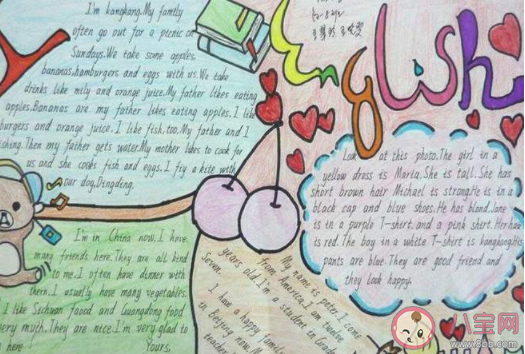 I'm kangkang.My family
often go out for a picnic on
Sundays.We take some apples,
bananas,hamburgers and eggs with us.We take
drinks like mily and orange juice.My father liker eating
apples.Bananas are my father likes eating apples.I like
burgers and orange juice.I like fish,too.My father and I
ishing.Then my father gets water.My mother likes to cook for
us and she cooks fish and eggs.I fiy a kite with
our dog,Dingding.
English
Look at this photo.The girl in a
yellow dress is Maria.She is tall.She has
short brown hair Michael is strong.He is in a
black cap and blue shoes.He has blond.Jane
is in a purple T-shirt.and a pink shirt.Her hair
is red.The boy in a white T-shirt is kangkang.His
pants are blue.They are good friend and
they look happy.
I'm in China now.I have
many friends here.They are all kind
to me.I often have dinner with
them.I usually have many vegetables.
I like Sichuan faood and Guangdong food
very myth.They are nice.I'm very glad to
here.
Yours,
My name is peter.I come
from America.I am twelve
years old.I'm a student in
Seven.
I have a happy
in Beijing now
八宝网
www.8bb.com